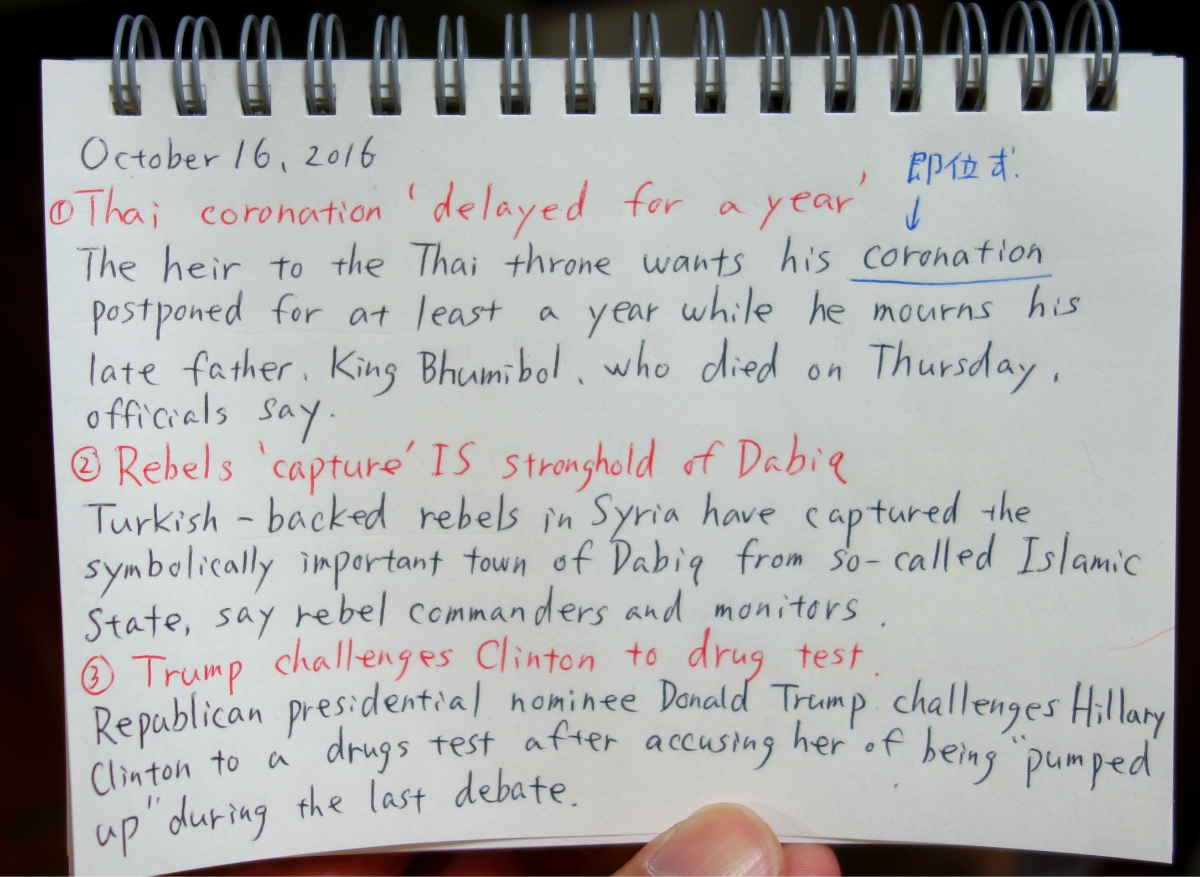 October 16, 2016
即位式
↓
① Thai coronation 'delayed for a year'
The heir to the Thai throne wants his coronation
postponed for at least a year while he mourns his
late father, King Bhumibol, who died on Thursday,
officials say.
② Rebels 'capture' IS stronghold of Dabiq
Turkish-backed rebels in Syria have captured the
symbolically important town of Dabiq from so-called Islamic
State, say rebel commanders and monitors.
③ Trump challenges Clinton to drug test.
Republican presidential nominee Donald Trump challenges Hillary
Clinton to a drugs test after accusing her of being "pumped
up" during the last debate.